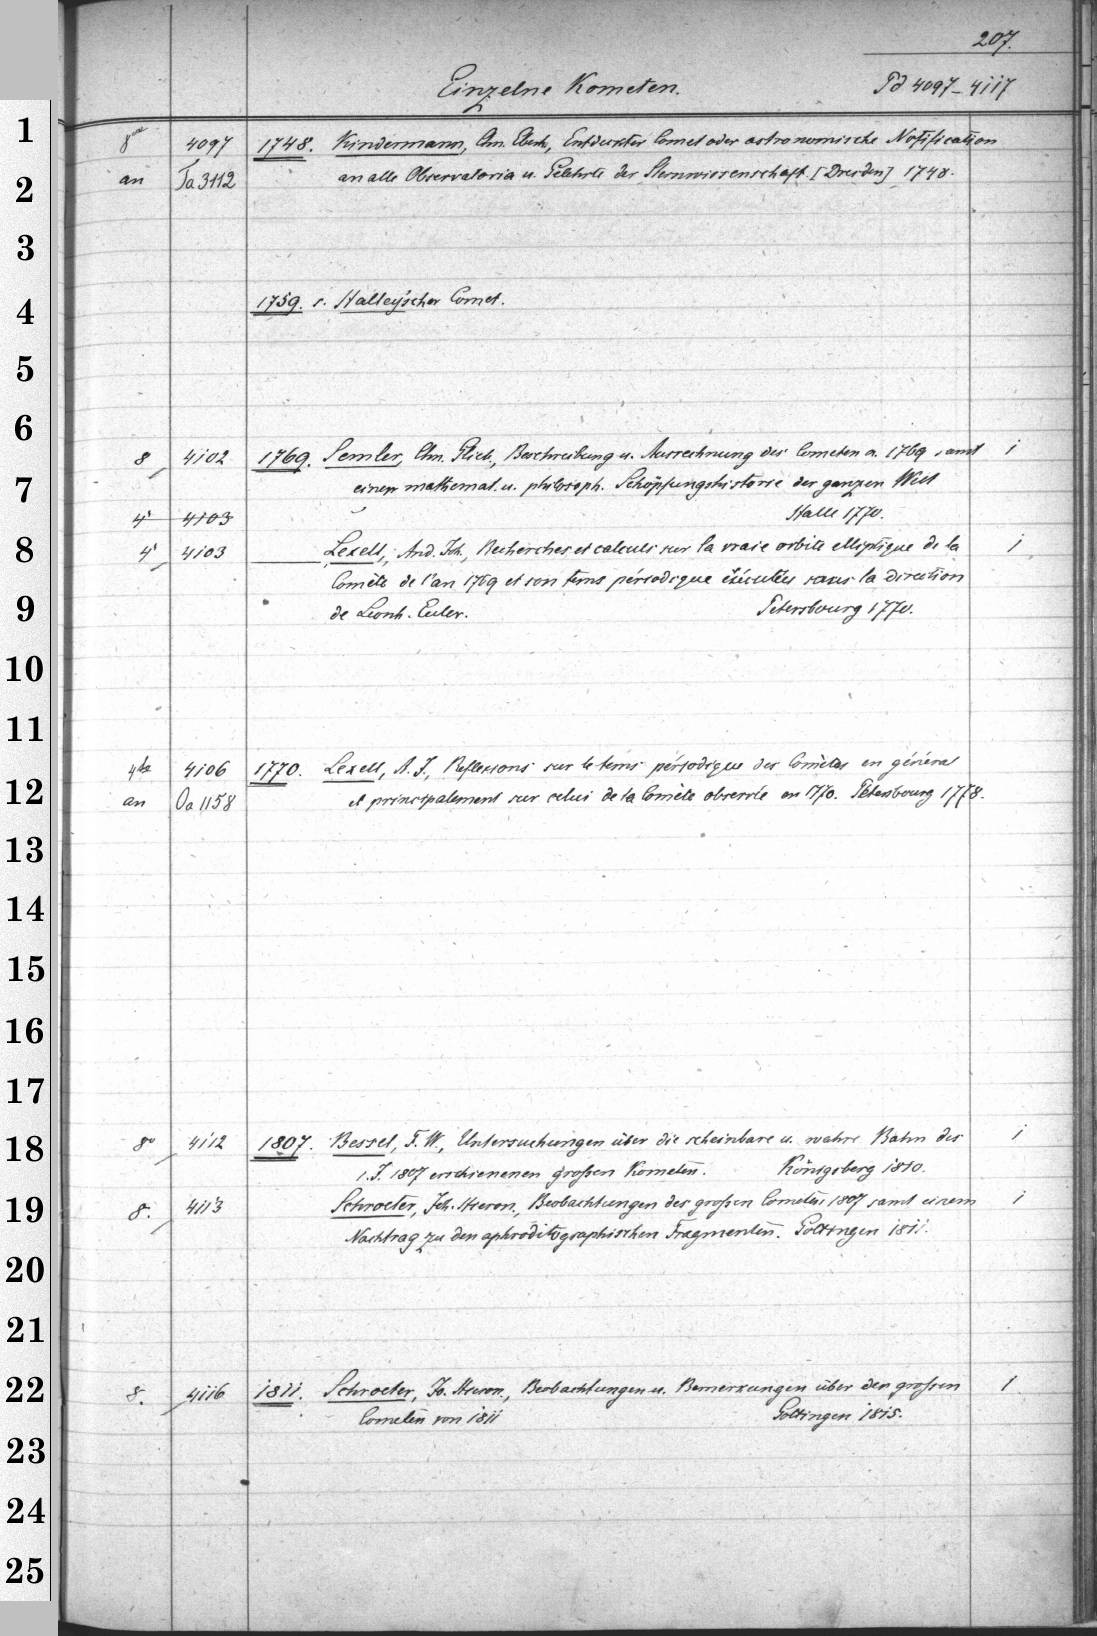 207.
Einzelne Kometen. Pd 4097-4117
1
8vo 4097 1748. Kindermann, Chn. Eberh., Entdeckter Comet oder astronomische Notification
2
an Ta 3112 an alle Observatoria u. Gelehrte der Sternwissenschaft. [Dresden] 1748.
3
4
1759. s. Halley'scher Comet.
5
6
8 4102 1769. Semler, Chn. Glieb., Beschreibung u. Ausrechnung des Cometen a. 1769, samt 1
7
einer mathemat. u. philosoph. Schöpfungshistorie der ganzen Welt
4° 4103 Halle 1770.
8
4° 4103 Lexell, And. Joh., Recherches et calculs sur la vraie orbite elliptique de la 1
Comète de l'an 1769 et son tems périodique éxécutées sous la direction
9
de Leonh. Euler. Petersbourg 1770.
10
11
4to 4106 1770. Lexell, A. J., Reflexions sur le tems périodique des Comètes en général
12
an Oa 1158 et principalement sur celui de la Comète observée en 1770. Petersbourg 1778.
13
14
15
16
17
18
8o 4112 1807. Bessel, F. W., Untersuchungen über die scheinbare u. wahre Bahn des 1
i. J. 1807 erschienenen großen Kometen. Königsberg 1810.
19
8. 4113 Schroeter, Joh. Hieron., Beobachtungen des großen Cometen 1807 samt einem 1
Nachtrag zu den aphroditographischen Fragmenten. Göttingen 1811.
20
21
22
8. 4116 1811. Schroeter, Jo. Hieron., Beobachtungen u. Bemerkungen über den großen 1
Cometen von 1811 Göttingen 1815.
23
24
25